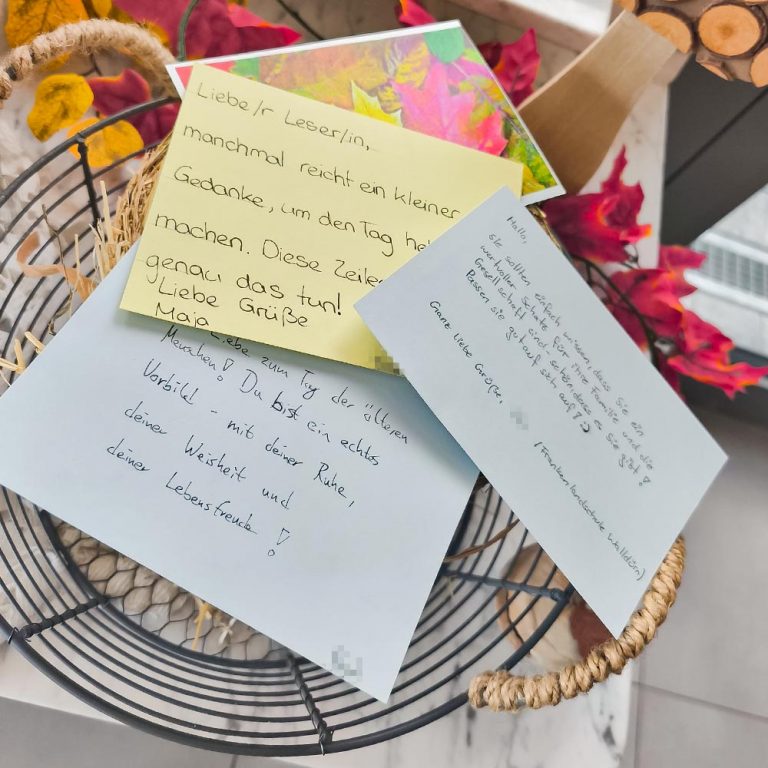 Liebe/r Leser/in,
manchmal reicht ein kleiner
Gedanke, um den Tag
machen. Diese Zeile
genau das tun!
Liebe Grüße
Maja
zum Tag der älteren
Menschen! Du bist ein echtes
Vorbild - mit deiner Ruhe,
deiner Weisheit und
deiner Lebensfreude!
Hallo,
sie sollten einfach wissen, dass sie ein
wertvoller Schatz für ihre Familie und die
Gesellschaft sind - schön, dass es sie gibt!
Passen sie gut auf sich auf!
Ganz liebe Grüße,
(Frankenlandschule Walldürn)